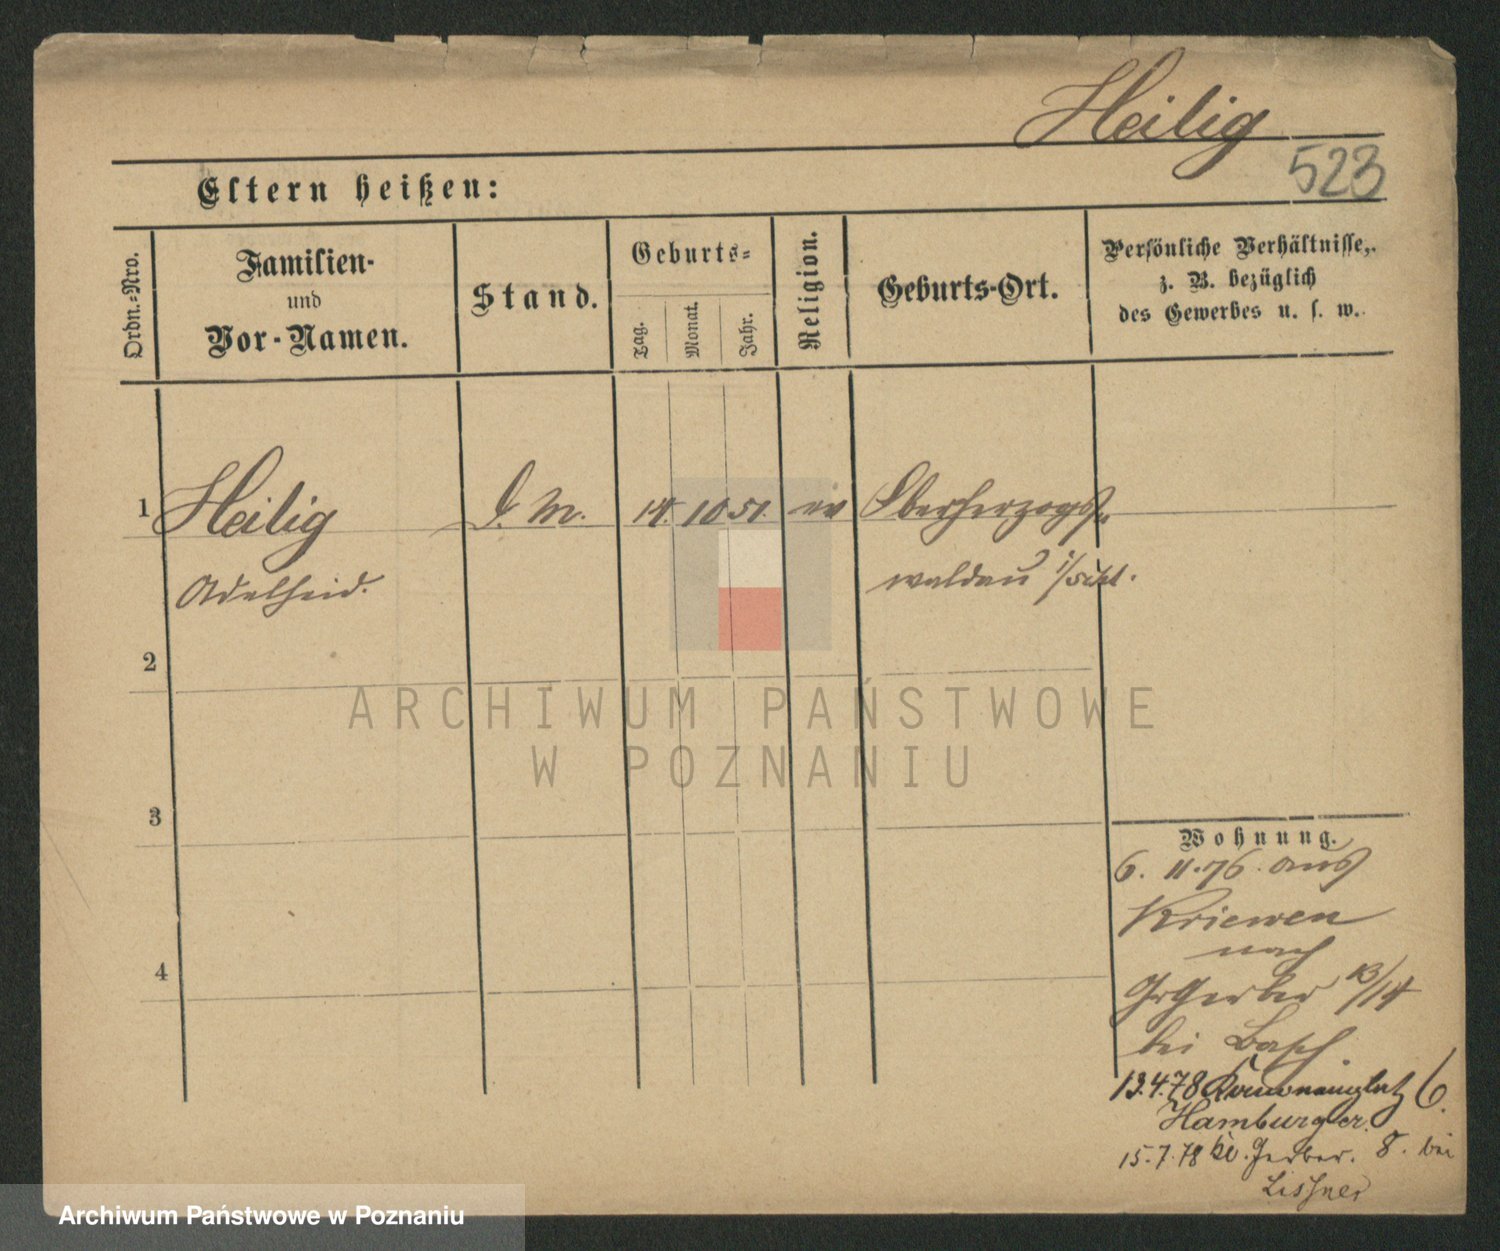 Heilig
523
Eltern heißen:
Ordn.-Nro.
Familien-
und
Vor-Namen.
Stand.
Geburts-
Tag.
Monat.
Jahr.
Religion.
Geburts-Ort.
Persönliche Verhältnisse,
z. B. bezüglich
des Gewerbes u. s. w.
1 Heilig D. M. 14. 10 51. ev Oberherzogs-
Adelheid. waldau i/Schl.
2
3
4
Wohnung.
6. 11.76. aus
Kriewen
nach
Gr Gerber 13/14
bei Basch.
13.4.78 6.
Hamburger.
15.7.78 kl. Gerber. 8. bei
Lissner
ARCHIWUM PAŃSTWOWE
W POZNANIU
Archiwum Państwowe w Poznaniu